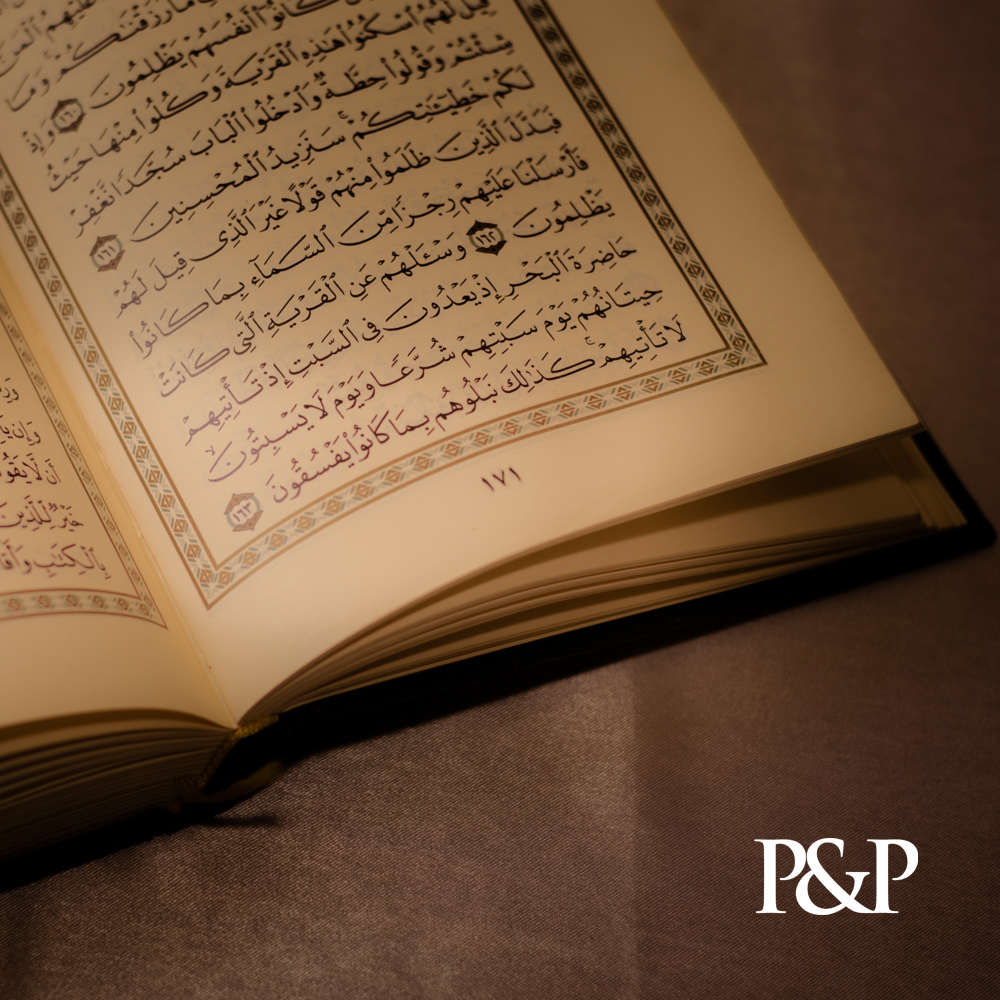 عَلَيْهِمُ
مَا رَزَقْنَٰكُمْ وَمَا
كَانُوٓا۟ أَنفُسَهُمْ يَظْلِمُونَ ١٦٠ وَإِذْ
قِيلَ لَهُمُ ٱسْكُنُوا۟ هَٰذِهِ ٱلْقَرْيَةَ وَكُلُوا۟ مِنْهَا حَيْثُ
شِئْتُمْ وَقُولُوا۟ حِطَّةٌ وَٱدْخُلُوا۟ ٱلْبَابَ سُجَّدًا نَّغْفِرْ
لَكُمْ خَطِيٓـَٰٔتِكُمْ سَنَزِيدُ ٱلْمُحْسِنِينَ ١٦١
فَبَدَّلَ ٱلَّذِينَ ظَلَمُوا۟ مِنْهُمْ قَوْلًا غَيْرَ ٱلَّذِى قِيلَ لَهُمْ
فَأَرْسَلْنَا عَلَيْهِمْ رِجْزًا مِّنَ ٱلسَّمَآءِ بِمَا كَانُوا۟
يَظْلِمُونَ ١٦٢ وَسْـَٔلْهُمْ عَنِ ٱلْقَرْيَةِ ٱلَّتِى كَانَتْ
حَاضِرَةَ ٱلْبَحْرِ إِذْ يَعْدُونَ فِى ٱلسَّبْتِ إِذْ تَأْتِيهِمْ
حِيتَانُهُمْ يَوْمَ سَبْتِهِمْ شُرَّعًا وَيَوْمَ لَا يَسْبِتُونَ
لَا تَأْتِيهِمْ كَذَٰلِكَ نَبْلُوهُم بِمَا كَانُوا۟ يَفْسُقُونَ ١٦٣
١٧١
وَإِن
أَن لَّا
خَيْرٌ لِّلَّذِينَ
بِٱلْكِتَٰبِ
P&P